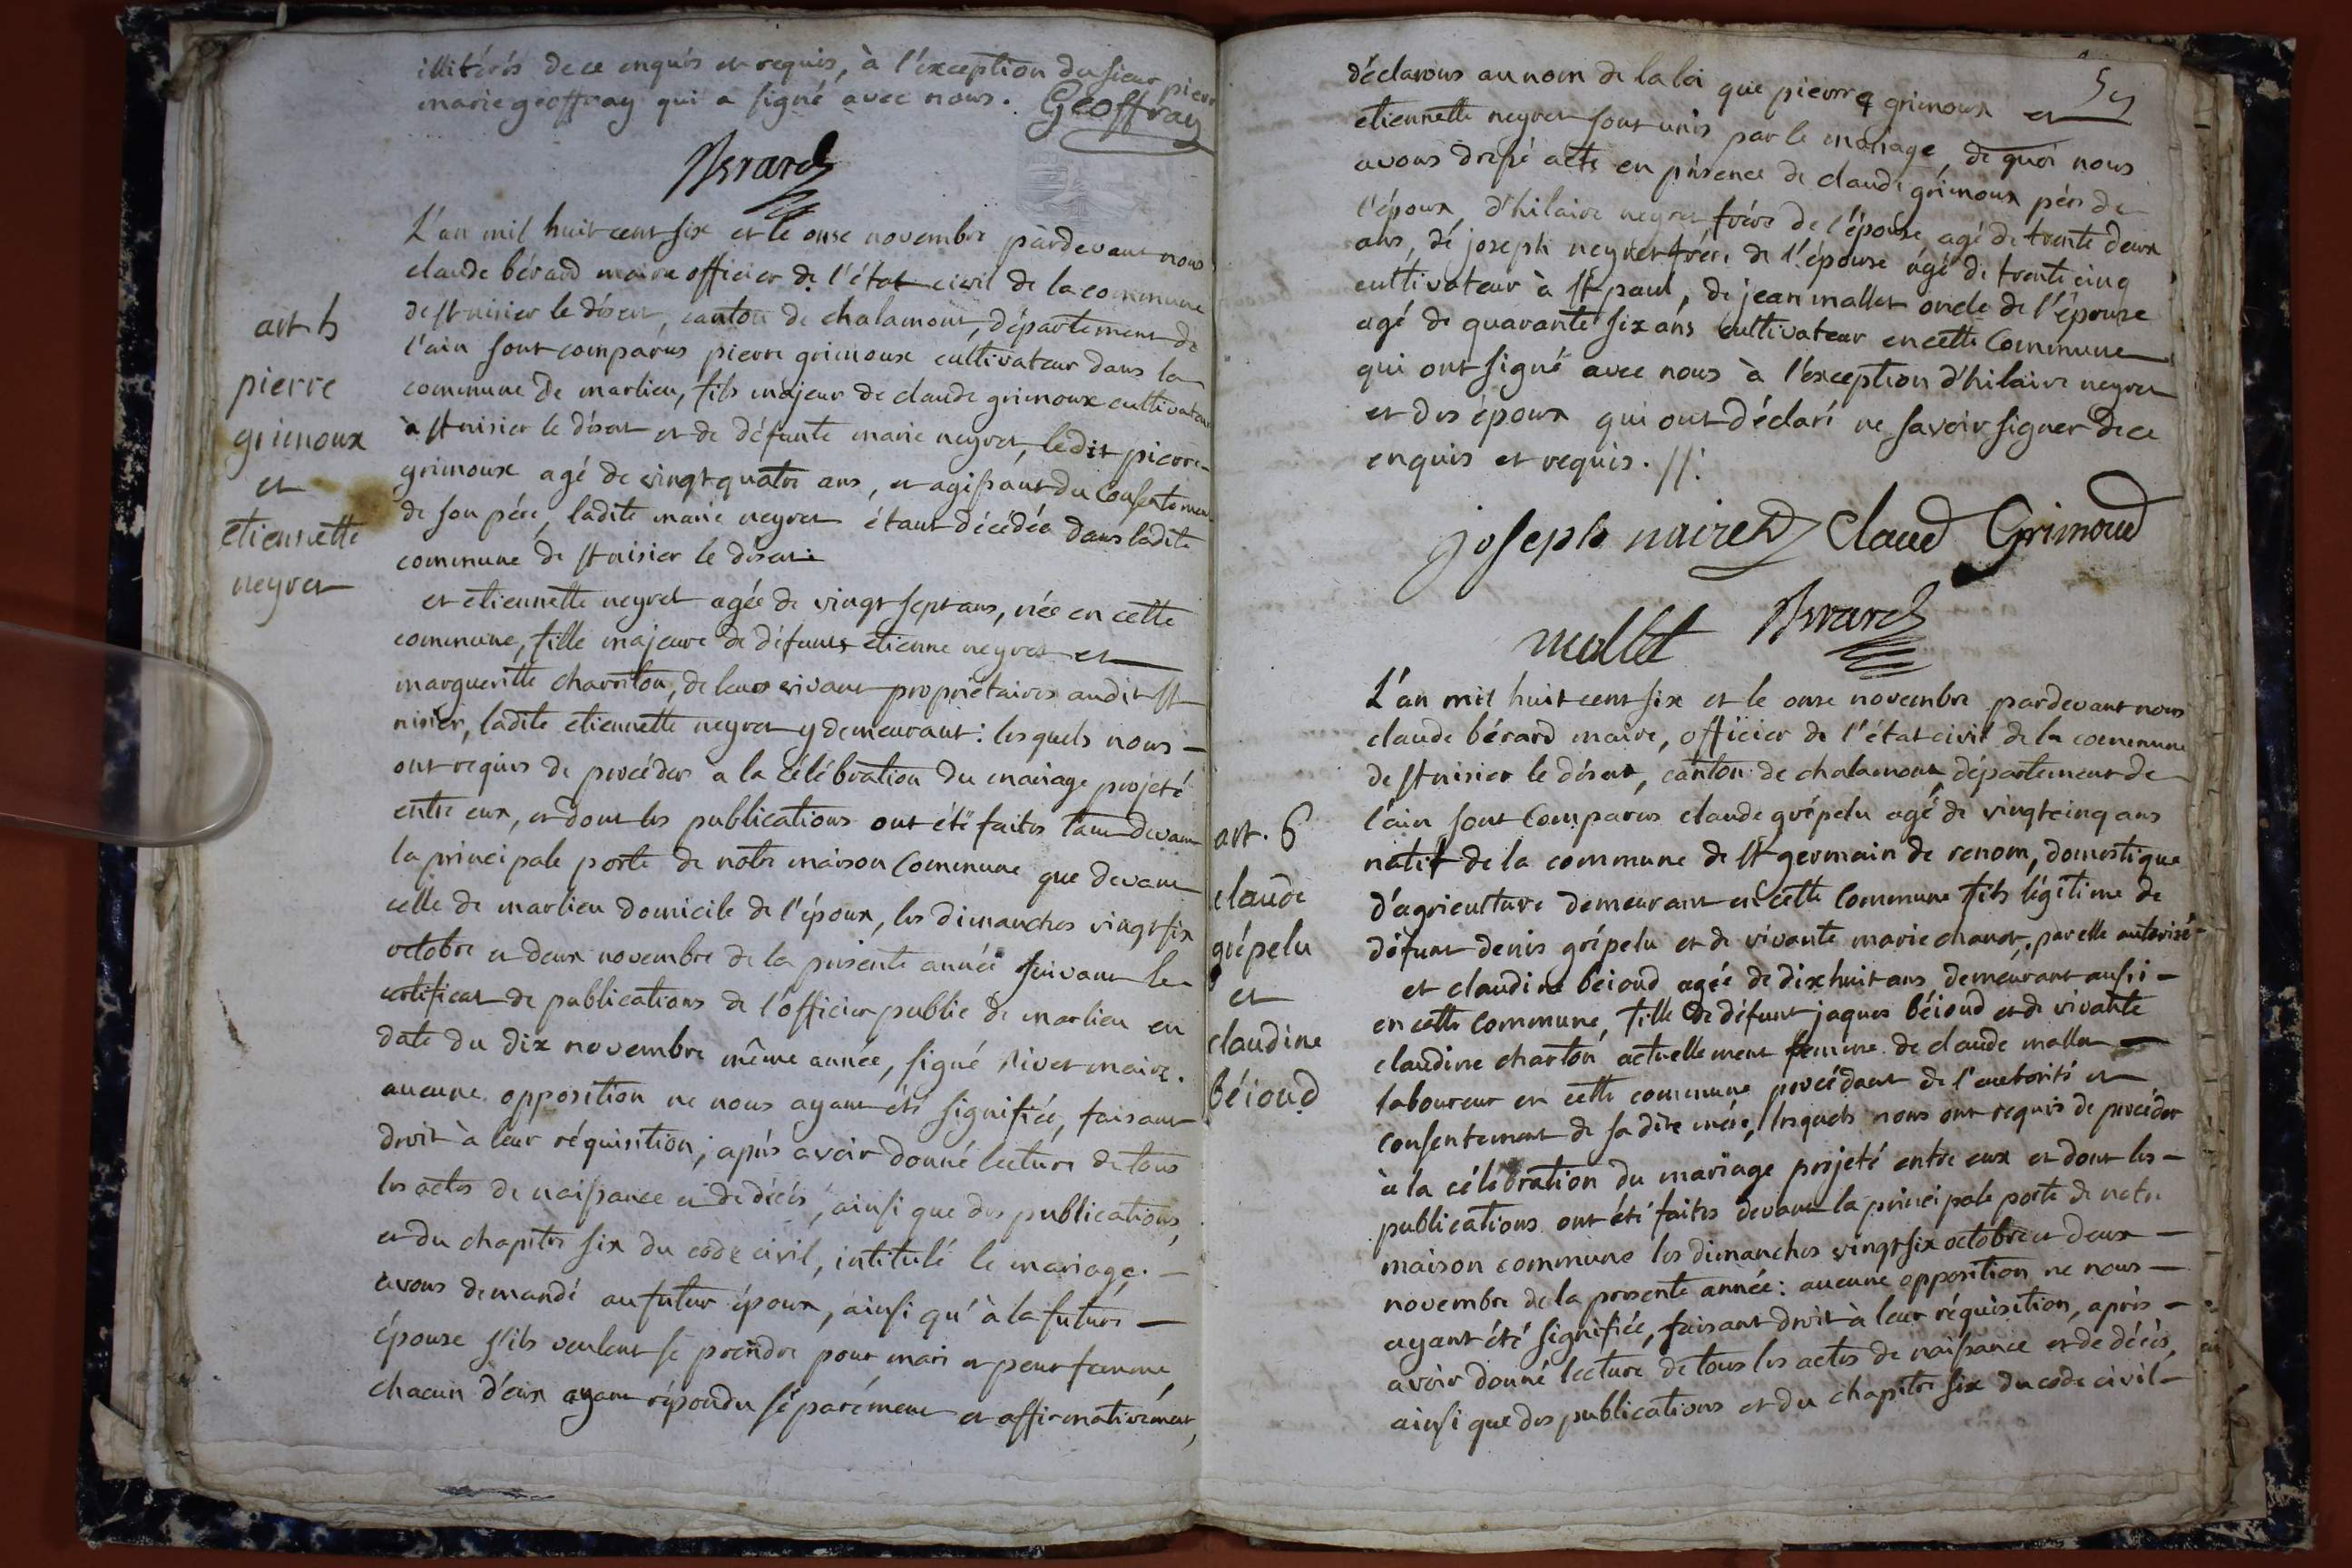 illitérés de ce enquis et requis, à l'exception du sieur pierre
marie geoffray qui a signé avec nous. Geoffray
Bérard
art 5
pierre
grimoux
et
etiennette
neyret
L'an mil huit cent six et le onse novembre pardevant nous
claude bérard maire officier de l'état civil de la commune
de st nisier le désert, canton de chalamont, département de
l'ain sont comparus pierre grimoux cultivateur dans la
commune de marlieu, fils majeur de claude grimoux cultivateur
à st nisier le désert et de défunte marie neyret, ledit pierre
grimoux agé de vingt quatre ans, et agissant du consentement
de son pére, ladite marie neyret étant décédée dans ladite
commune de st nisier le désert:
et etiennette neyret agée de vingt sept ans, née en cette
commune, fille majeure de défunts etienne neyret et
margueritte charriton, de leurs vivant propriétaires audit st
nisier, ladite etiennette neyret y demeurant: lesquels nous
ont requis de procéder a la célébration du mariage projeté
entre eux, et dont les publications ont été faites tant devant
la principale porte de notre maison commune que devant
celle de marlieu domicile de l'époux, les dimanches vingt six
octobre et deux novembre de la présente année suivant le
certificat de publications de l'officier public de marlieu en
date du dix novembre même année, signé Rivet maire.
aucune opposition ne nous ayant été signifiée, faisant
droit à leur réquisition; après avoir donné lecture de tous
les actes de naissance et de décès, ainsi que des publications,
et du chapitre six du code civil, intitulé le mariage.
avons demandé au futur époux, ainsi qu'à la future
épouse s'ils veulent se prendre pour mari et pour femme,
chacun d'eux ayant répondu séparément et affirmativement,
déclarons au nom de la loi que pierre grimoux et
etiennette neyret sont unis par le mariage, de quoi nous
avons dressé acte en présence de claude grimoux pére de
l'époux, d'hilaire neyret, frére de l'épouse, agé de trente deux
ans, de joseph neyret frére de l'épouse agé de trente cinq
cultivateur à st paul, de jean mallet oncle de l'épouse
agé de quarante six ans cultivateur en cette Commune
qui ont signé avec nous à l'exception d'hilaire neyret
et des époux qui ont déclaré ne savoir signer de ce
enquis et requis. //.
joseph naired Claud Grimoud
mallet Bérard
art. 6
claude
grépelu
et
claudine
béioud
L'an mil huit cent six et le onse novembre pardevant nous
claude bérard maire, officier de l'état civil de la commune
de st nisier le désert, canton de chalamont, département de
l'ain sont comparus claude grépelu agé de vingt cinq ans
natif de la commune de st germain de renom, domestique
d'agriculture demeurant en cette Commune fils légitime de
défunt denis grépelu et de vivante marie chanet, par elle autorisé
et claudine béioud agée de dix huit ans demeurant aussi
en cette Commune, fille de défunt jaques béioud et de vivante
claudine charton actuellement femme de claude mallet
laboureur en cette commune procédant de l'autorité et
consentement de sa dite mére, lesquels nous ont requis de procéder
à la célébration du mariage projeté entre eux et dont les
publications ont été faites devant la principale porte de notre
maison commune les dimanches vingt six octobre et deux
novembre de la présente année: aucune opposition ne nous
ayant été signifiée, faisant droit à leur réquisition, après
avoir donné lecture de tous les actes de naissance et de décès,
ainsi que des publications et du chapitre six du code civil